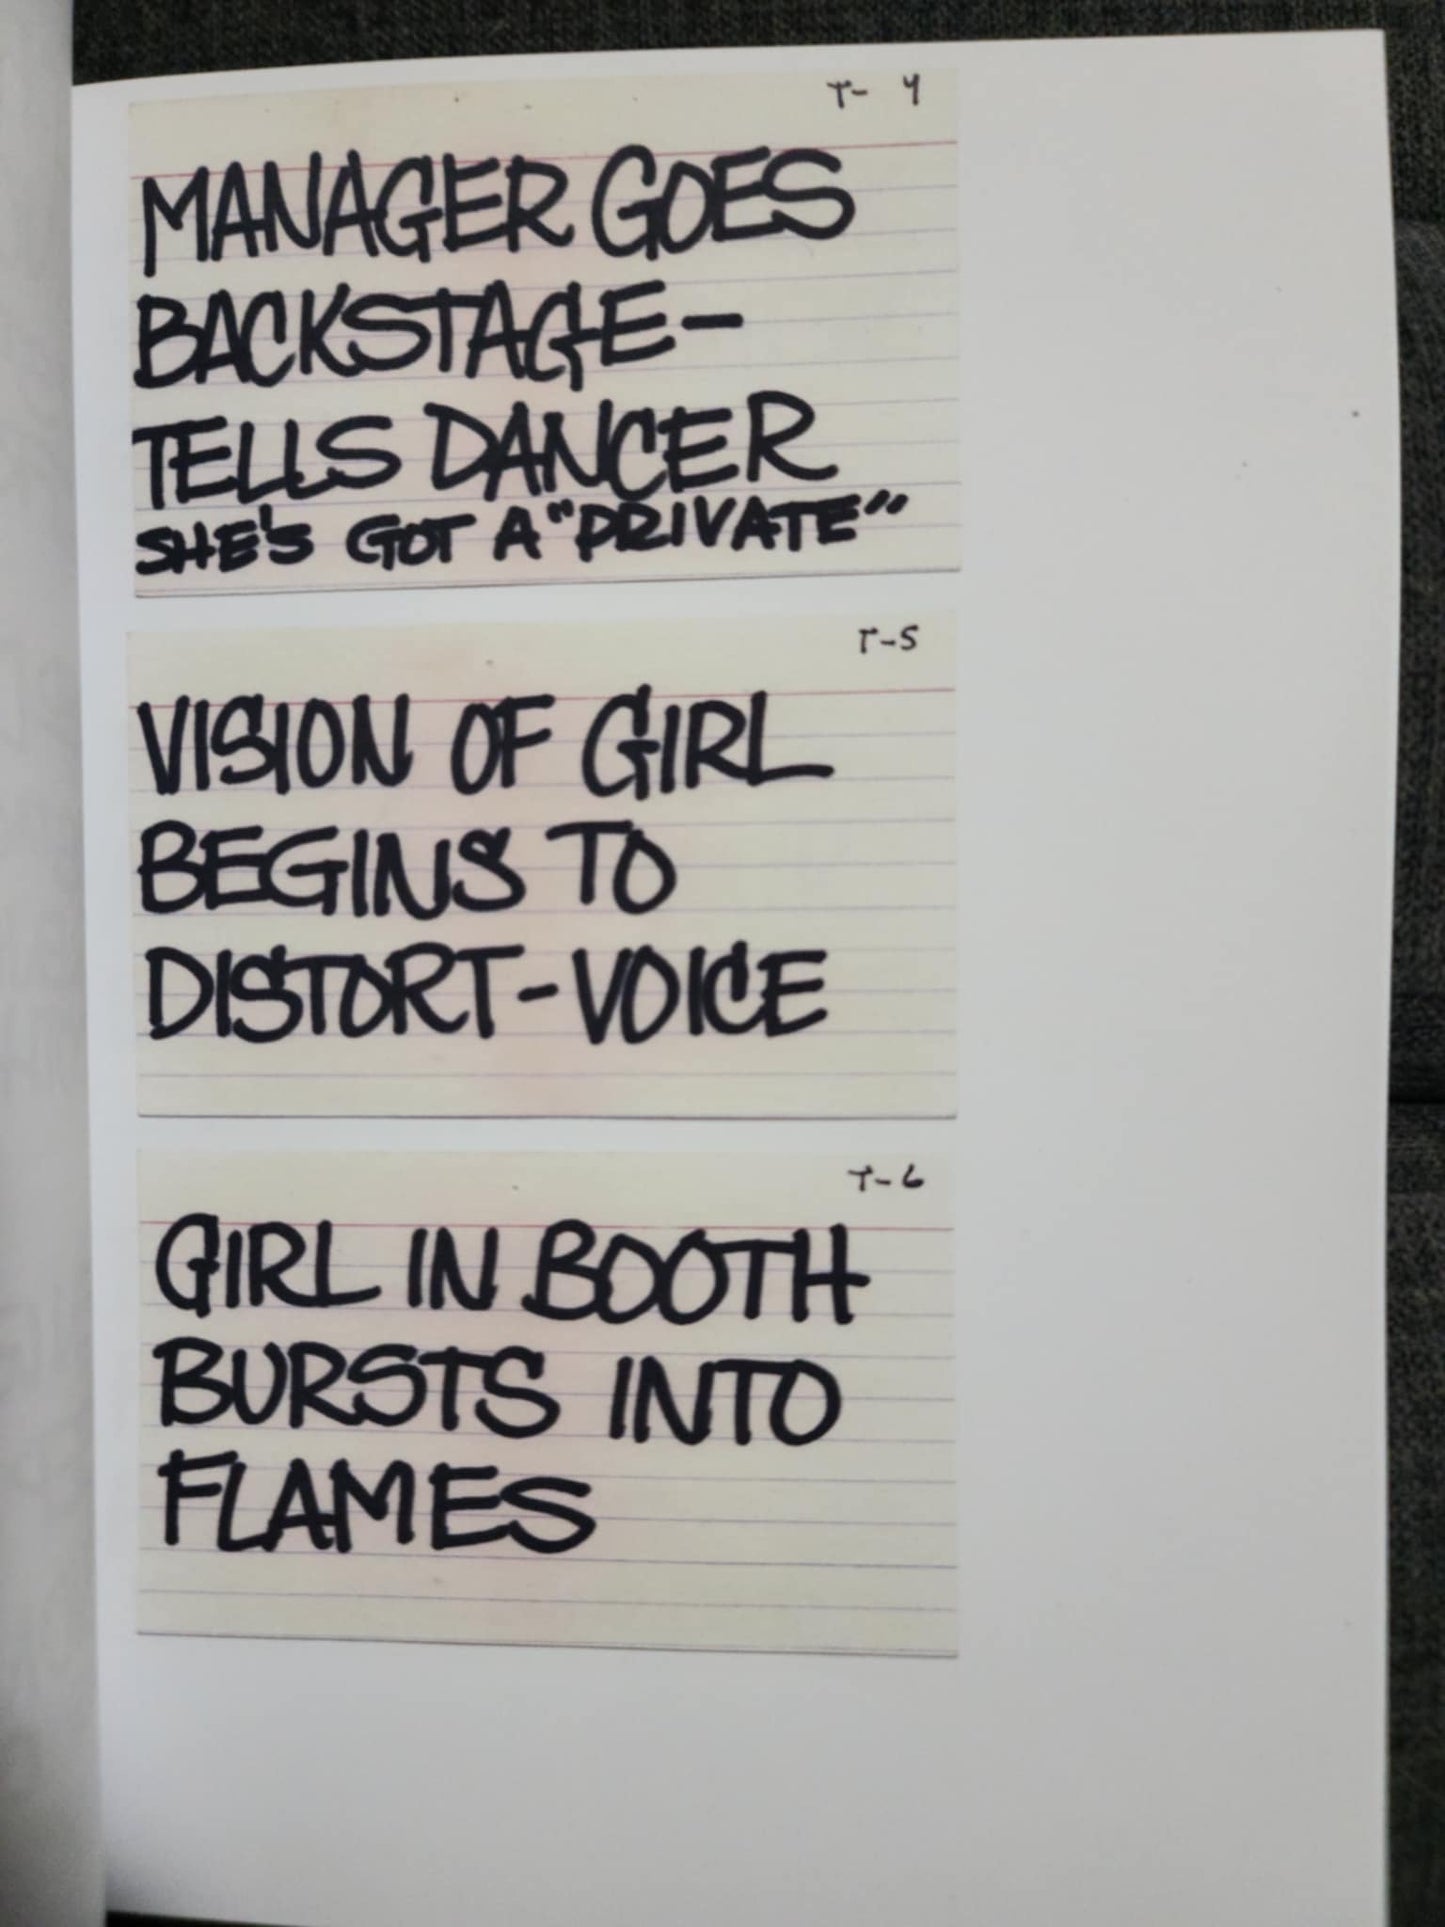 T- 4
MANAGER GOES
BACKSTAGE-
TELLS DANCER
SHE'S GOT A "PRIVATE"
T-5
VISION OF GIRL
BEGINS TO
DISTORT-VOICE
T-6
GIRL IN BOOTH
BURSTS INTO
FLAMES